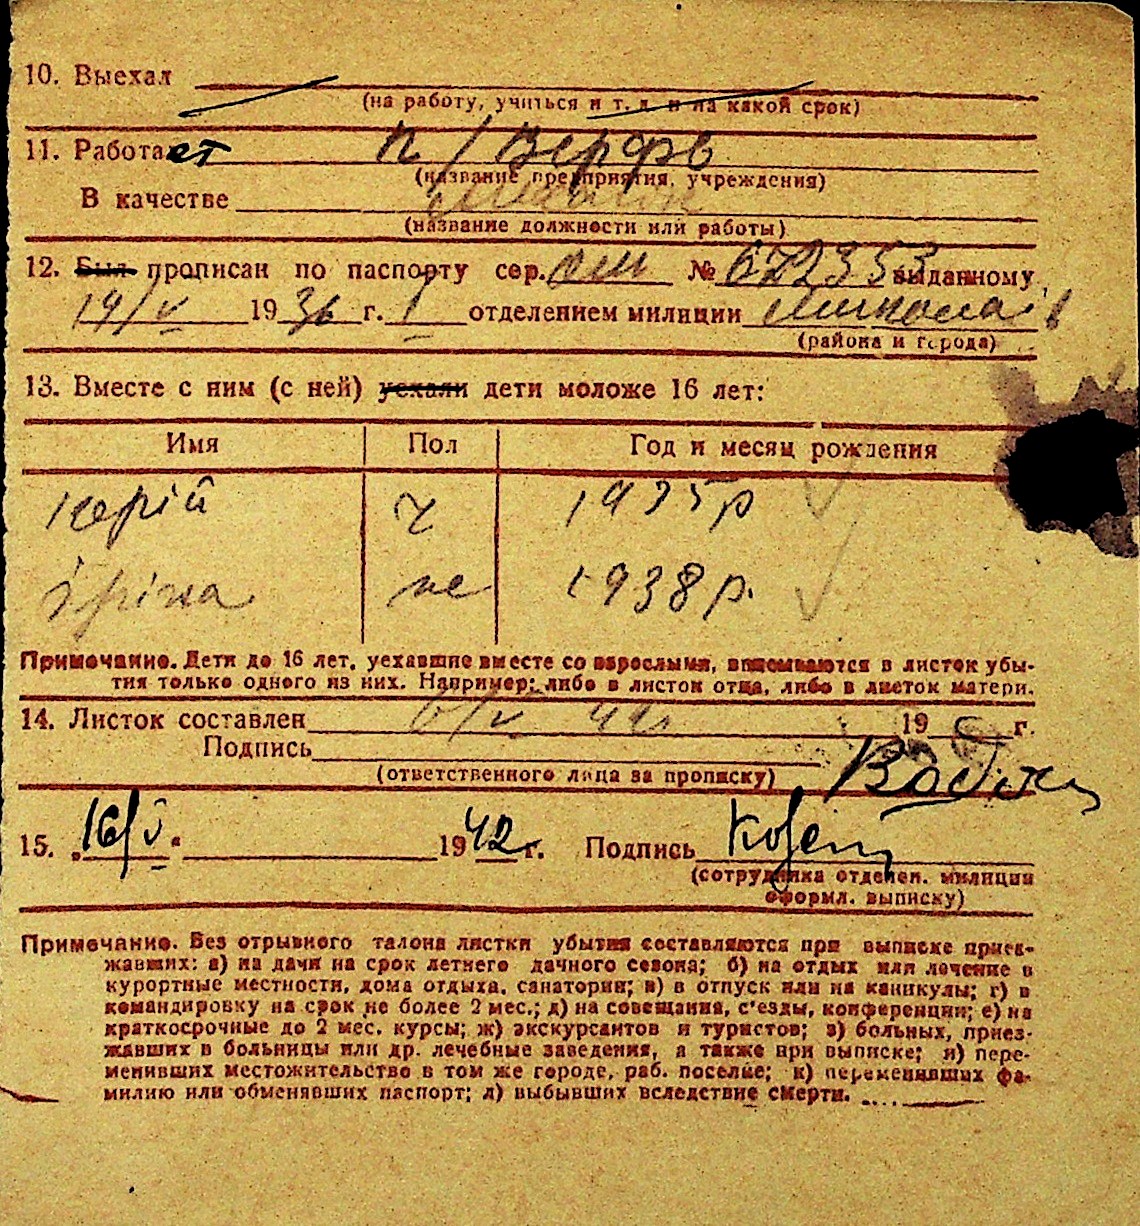 10. Выехал
(на работу, учиться и т. д. и на какой срок)
11. Работает п/Верфь
(название предприятия, учреждения)
В качестве
(название должности или работы)
12. Был прописан по паспорту сер. № 672353 выданному
14/V 1936 г. 1 отделением милиции Миколаїв
(района и города)
13. Вместе с ним (с ней) уехали дети моложе 16 лет:
Имя Пол Год и месяц рождения
Юрій ч 1935 р
Іріна же 1938 р.
Примечание. Дети до 16 лет, уехавшие вместе со взрослыми, вписываются в листок убы-
тия только одного из них. Например: либо в листок отца, либо в листок матери.
14. Листок составлен 6/V 19 г.
Подпись
(ответственного лица за прописку)
15. „16/V“ 1942 г. Подпись
(сотрудника отделен. милиции
оформл. выписку)
Примечание. Без отрывного талона листки убытия составляются при выписке приез-
жавших: а) на дачи на срок летнего дачного сезона; б) на отдых или лечение в
курортные местности, дома отдыха, санатории; в) в отпуск или на каникулы; г) в
командировку на срок не более 2 мес.; д) на совещания, с'езды, конференции; е) на
краткосрочные до 2 мес. курсы; ж) экскурсантов и туристов; з) больных, приез-
жавших в больницы или др. лечебные заведения, а также при выписке; и) пере-
менивших местожительство в том же городе, раб. поселке; к) переменивших фа-
милию или обменявших паспорт; л) выбывших вследствие смерти.